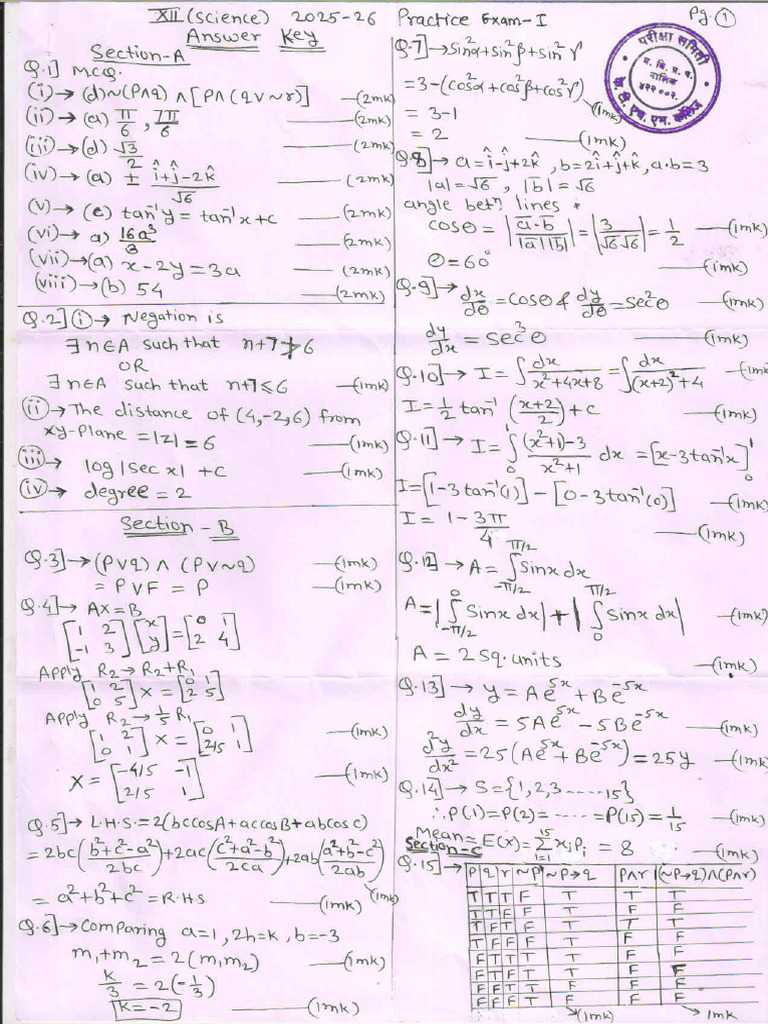 XII (science) 2025-26 Practice Exam-I
Pg. ①
Answer Key
Section-A
Q.1] MCQ.
(i) → (d) ~(P∧q) ∧ [P∧(q∨~r)] —(2mk)
(ii) → (a) π/6, 7π/6 —(2mk)
(iii) → (d) √3/2 —(2mk)
(iv) → (a) ± (î+ĵ-2k̂)/√6 —(2mk)
(v) → (c) tan⁻¹y = tan⁻¹x + c —(2mk)
(vi) → a) 16a³/3 —(2mk)
(vii) → (a) x-2y=3a —(2mk)
(viii) → (b) 54 —(2mk)
Q.2] (i) → Negation is
∃ n∈A such that n+7 ≯ 6
OR
∃ n∈A such that n+7≤6 —(1mk)
(ii) → The distance of (4,-2,6) from
xy-Plane = |z| = 6 —(1mk)
(iii) → log|sec x| + c —(1mk)
(iv) → degree = 2
Section - B
Q.3] → (P∨q) ∧ (P∨~q) —(1mk)
= P∨F = P —(1mk)
Q.4] → AX=B
[1 2; -1 3] [x; y] = [0 1; 2 4]
Apply R₂→R₂+R₁
[1 2; 0 5] X = [0 1; 2 5]
Apply R₂→1/5 R₁
[1 2; 0 1] X = [0 1; 2/5 1] —(1mk)
X = [-4/5 -1; 2/5 1] —(1mk)
Q.5] → L.H.S.=2(bccosA+accosB+abcosc)
= 2bc((b²+c²-a²)/2bc) + 2ac((c²+a²-b²)/2ca) + 2ab((a²+b²-c²)/2ab) (1mk)
= a²+b²+c² = R.H.S —(1mk)
Q.6] → Comparing a=1, 2h=k, b=-3
m₁+m₂ = 2(m₁m₂) —(1mk)
k/3 = 2(-1/3)
k=-2 —(1mk)
Q.7 → sin²α+sin²β+sin²γ
=3-(cos²α+cos²β+cos²γ) (1mk)
= 3-1
= 2 —(1mk)
परीक्षा समिती
म. वि. प्र. च.
नाशिक
४२२ ००२.
Q.8] → a=î-ĵ+2k̂, b=2î+ĵ+k̂, a.b=3
|a|=√6, |b̄|=√6
angle betⁿ lines
cosθ = |ā.b̄/|ā||b̄|| = |3/√6√6| = 1/2 —(1mk)
θ=60° —(1mk)
Q.9] → dx/dθ = cosθ & dy/dθ = sec²θ —(1mk)
dy/dx = sec³θ —(1mk)
Q.10] → I = ∫dx/(x²+4x+8) = ∫dx/((x+2)²+4) —(1mk
I = 1/2 tan⁻¹((x+2)/2) + c —(1mk)
Q.11] → I = ∫₀¹ ((x²+1)-3)/(x²+1) dx = [x-3tan⁻¹x]₀¹
I=[1-3tan⁻¹(1)] - [0-3tan⁻¹(0)] —(1mk)
I = 1 - 3π/4 —(1mk)
Q.12] → A = ∫_{-π/2}^{π/2} sinx dx
A = |∫_{-π/2}^{0} sinx dx| + |∫_{0}^{π/2} sinx dx| —(1mk)
A = 2 sq. units —(1mk)
Q.13] → y = Ae⁵ˣ + Be⁻⁵ˣ
dy/dx = 5Ae⁵ˣ - 5Be⁻⁵ˣ —(1mk)
d²y/dx² = 25(Ae⁵ˣ + Be⁻⁵ˣ) = 25y —(1mk)
Q.14] → S={1,2,3 ----- 15}
∴P(1)=P(2)= ---- =P(15)=1/15 —(1mk)
Mean = E(x) = Σ_{i=1}^{15} xᵢpᵢ = 8 —(1mk)
Section-C
Q.15] → P q r ~P ~P→q P∧r (~P→q)∧(P∧r)
T T T F T T T
T T F F T F F
T F T F T T T
T F F F T F F
F T T T T F F
F T F T T F F
F F T T F F F
F F F T F F F
(1mk) 1mk